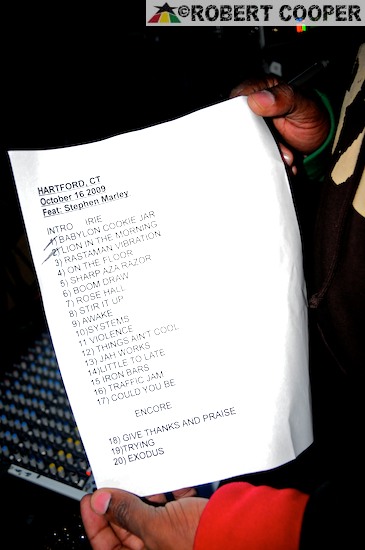 ©ROBERT COOPER
HARTFORD, CT
October 16 2009
Feat: Stephen Marley
INTRO IRIE
1) BABYLON COOKIE JAR
2) LION IN THE MORNING
3) RASTAMAN VIBRATION
4) ON THE FLOOR
5) SHARP AZA RAZOR
6) BOOM DRAW
7) ROSE HALL
8) STIR IT UP
9) AWAKE
10)SYSTEMS
11 VIOLENCE
12) THINGS AIN'T COOL
13) JAH WORKS
14)LITTLE TO LATE
15 IRON BARS
16) TRAFFIC JAM
17) COULD YOU BE
ENCORE
18) GIVE THANKS AND PRAISE
19)TRYING
20) EXODUS